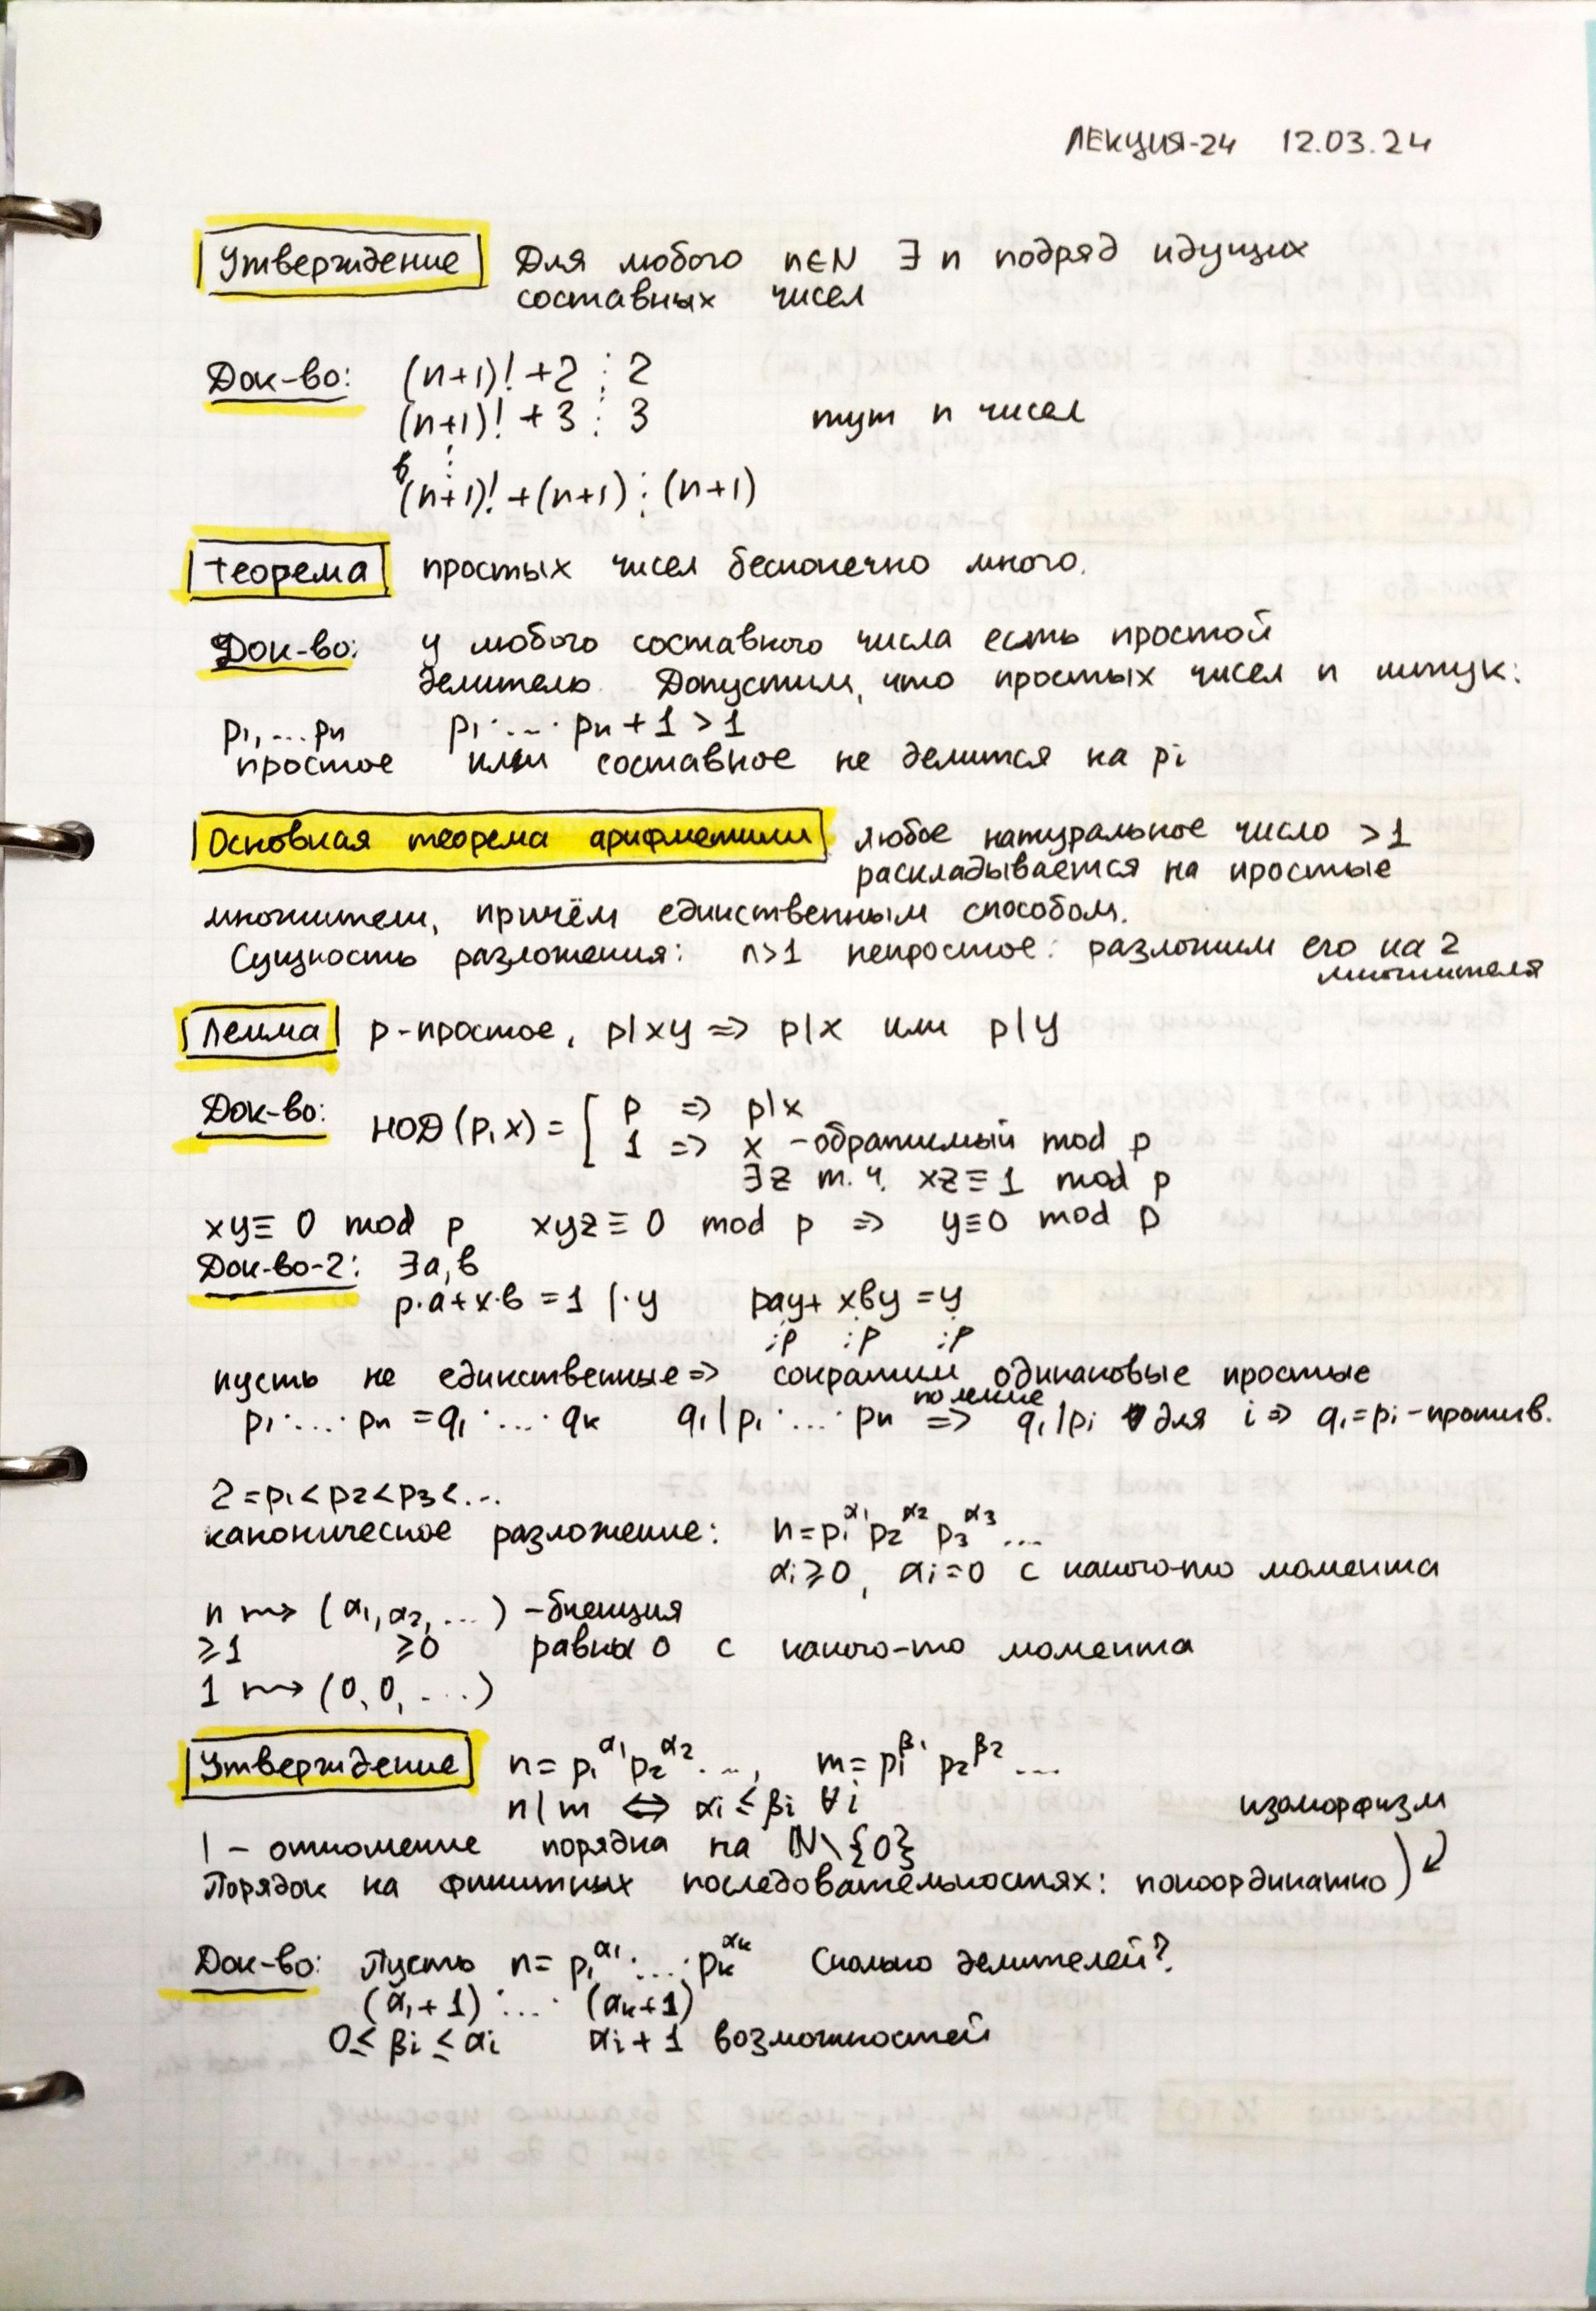 ЛЕКЦИЯ-24 12.03.24
Утверждение Для любого n∈N ∃ n подряд идущих
составных чисел
Док-во: (n+1)! +2 ⋮ 2
(n+1)! + 3 ⋮ 3 тут n чисел
⋮
(n+1)! +(n+1) ⋮ (n+1)
Теорема простых чисел бесконечно много.
Док-во: у любого составного числа есть простой
делитель. Допустим, что простых чисел n штук:
p₁,...pₙ p₁·...·pₙ + 1 > 1
простое или составное не делится на pᵢ
Основная теорема арифметики любое натуральное число >1
раскладывается на простые
множители, причём единственным способом.
Сущность разложения: n>1 непростое: разложим его на 2
множителя
Лемма p-простое, p|xy => p|x или p|y
Док-во: НОД(p,x) = [ p => p|x
1 => x -обратимый mod p
∃z т.ч. xz≡1 mod p
xy≡ 0 mod p xyz≡0 mod p => y≡0 mod p
Док-во-2: ∃a,b
p·a+x·b =1 |·y pay+ xby =y
⋮p ⋮p ⋮p
пусть не единственные => сократим одинаковые простые
p₁·...·pₙ =q₁·...·qₖ q₁|p₁·...·pₙ по лемме => q₁|pᵢ для i => q₁=pᵢ-против.
2=p₁<p₂<p₃<...
каноническое разложение: n=p₁^α₁ p₂^α₂ p₃^α₃ ...
αᵢ⩾0, αᵢ=0 с какого-то момента
n ⇝ (α₁,α₂,...) -биекция
⩾1 ⩾0 равны 0 с какого-то момента
1 ⇝ (0,0,...)
Утверждение n= p₁^α₁ p₂^α₂ ..., m=p₁^β₁ p₂^β₂ ...
n|m ⟺ αᵢ≤βᵢ ∀i
изоморфизм
| - отношение порядка на ℕ\{0}
Порядок на финитных последовательностях: покоординатно
Док-во: Пусть n= p₁^α₁·...·pₖ^αₖ Сколько делителей?
(α₁+1)·...·(αₖ+1)
0≤ βᵢ ≤αᵢ αᵢ+1 возможностей